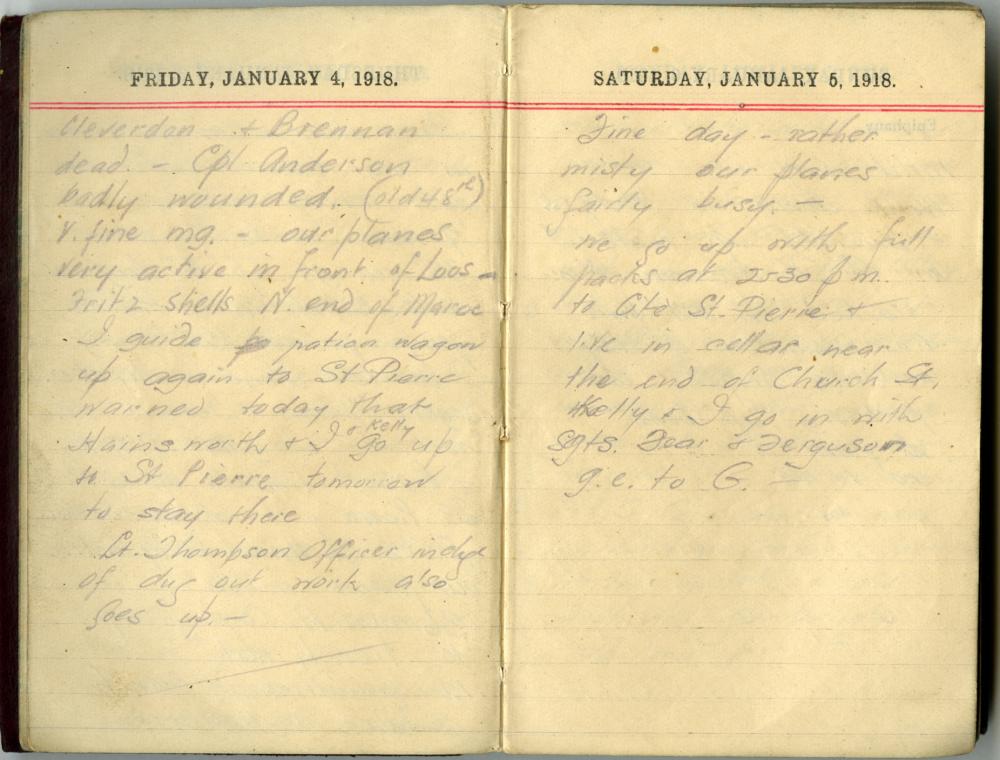 FRIDAY, JANUARY 4, 1918.
Cleverdon + Brennan
dead. - Cpl Anderson
badly wounded. (old 48th)
V. fine mg. - our planes
very active in front of Loos -
Fritz shells N. end of Maroc
I guide ration wagon
up again to St Pierre
warned today that
Hainsworth & I & Kelly go up
to St Pierre tomorrow
to stay there
Lt. Thompson Officer in chge
of dug out work also
goes up. -
SATURDAY, JANUARY 5, 1918.
Fine day - rather
misty our planes
fairly busy. -
we go up with full
packs at 2-30 p.m.
to Cité St. Pierre &
live in cellar near
the end of Church St.
Kelly & I go in with
Sgts. & Ferguson
g.e. to G. -